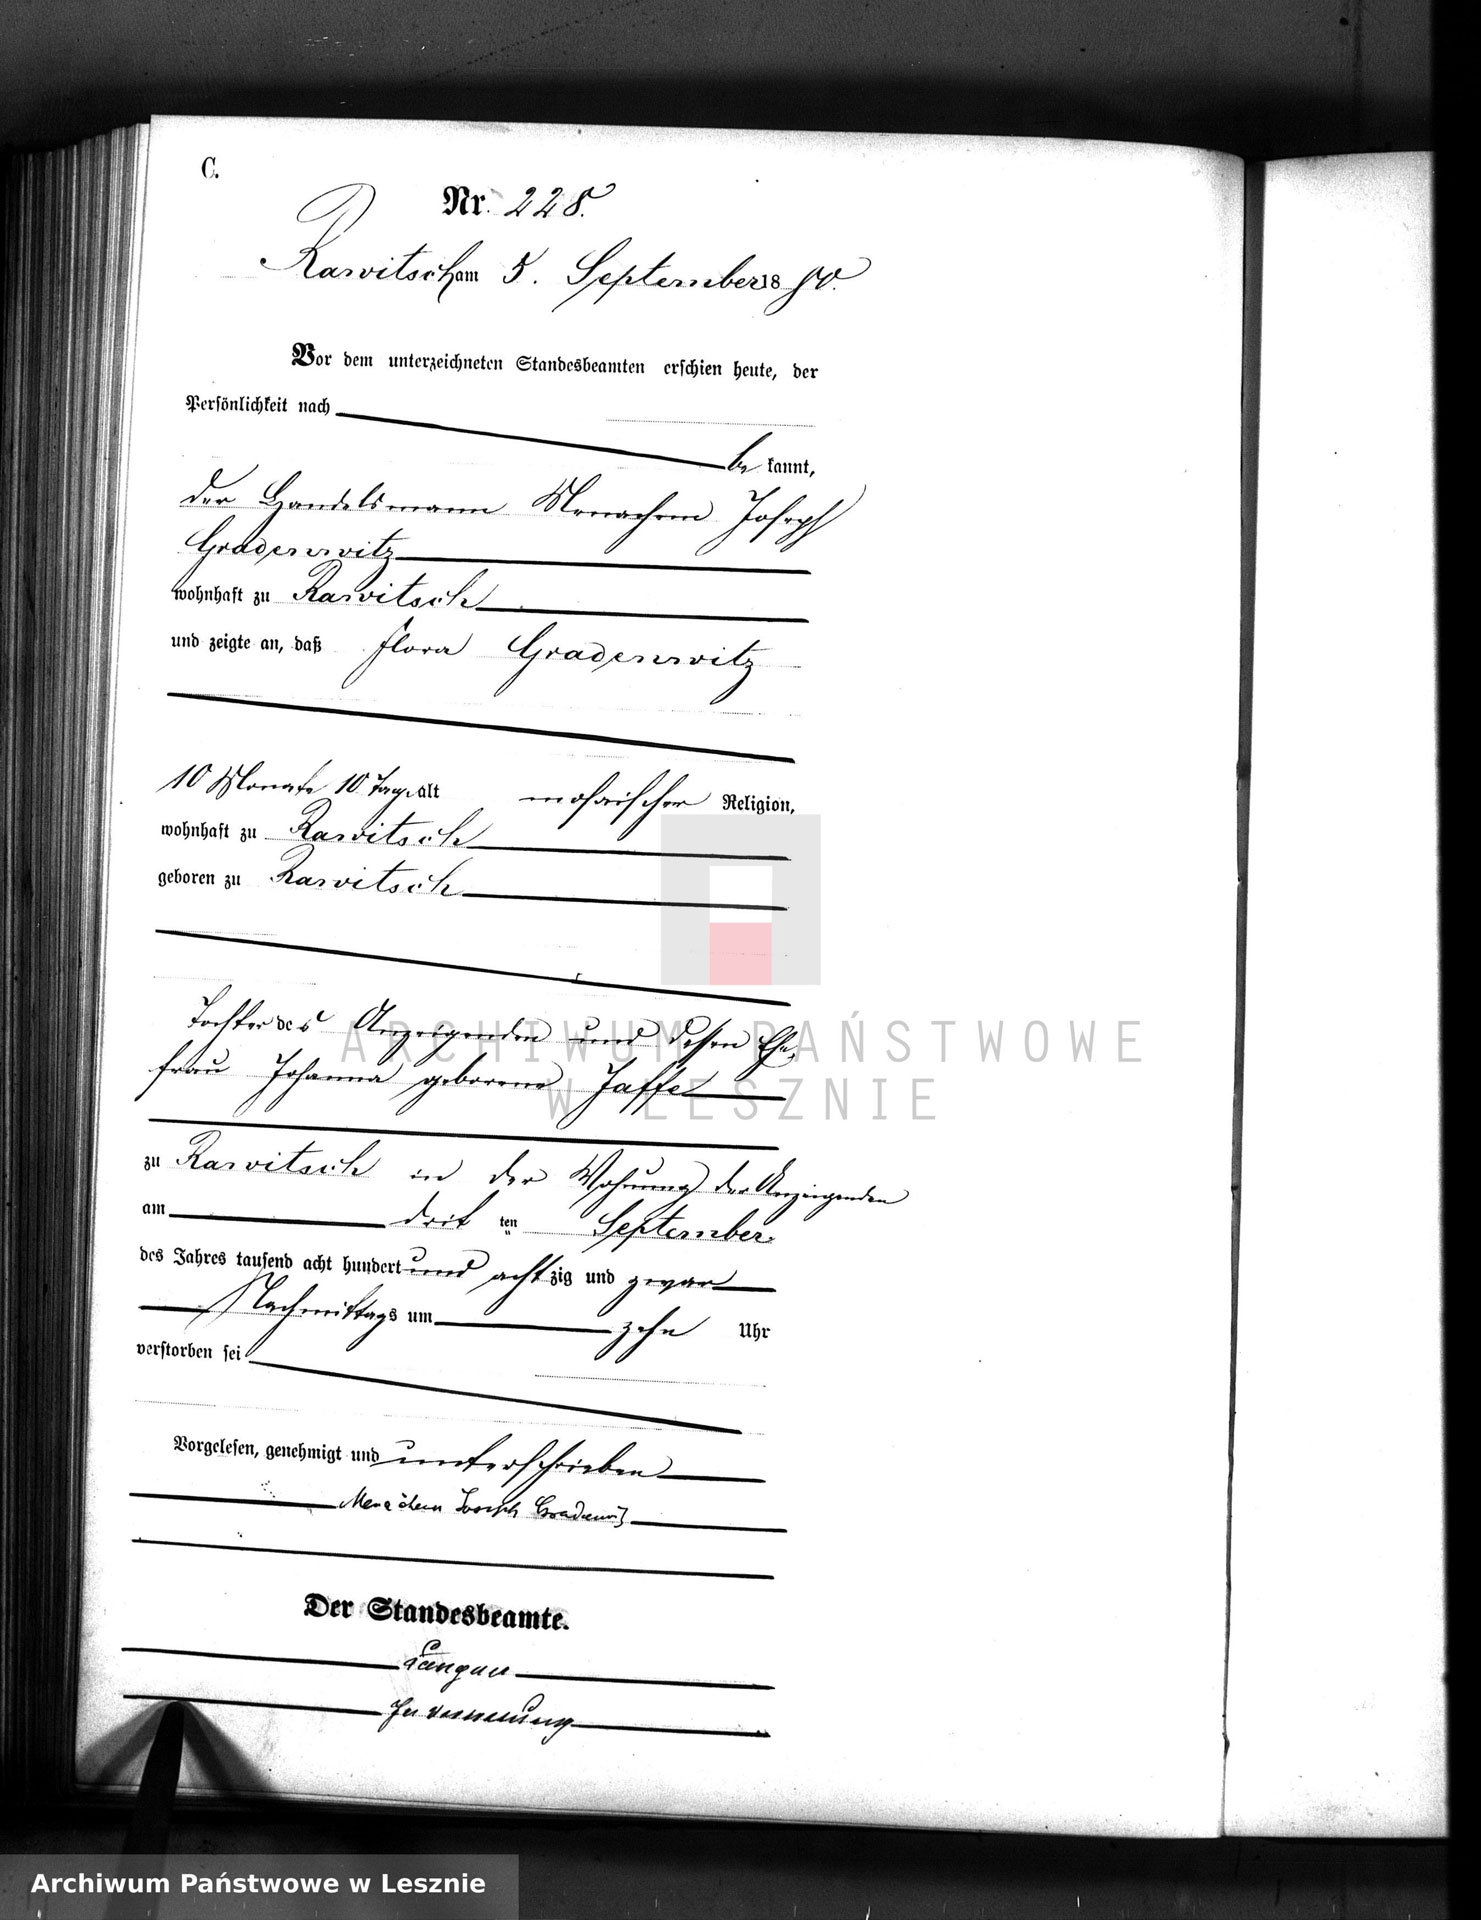 C.
Nr. 228.
Rawitsch am 5. September 1880.
Vor dem unterzeichneten Standesbeamten erschien heute, der
Persönlichkeit nach
be kannt,
der Handelsmann Menachem Joseph
Gradenwitz
wohnhaft zu Rawitsch
und zeigte an, daß Flora Gradenwitz
10 Monate 10 Tage alt mosaischer Religion,
wohnhaft zu Rawitsch
geboren zu Rawitsch
Tochter des Anzeigenden und dessen Ehe-
frau Johanna geborene Jaffe
ARCHIWUM PAŃSTWOWE
W LESZNIE
zu Rawitsch in der Wohnung des Anzeigenden
am drit ten September
des Jahres tausend acht hundert und achtzig und zwar
Nachmittags um zehn Uhr
verstorben sei
Vorgelesen, genehmigt und unterschrieben
Menachem Joseph Gradenwitz
Der Standesbeamte.
In Vertretung
Archiwum Państwowe w Lesznie